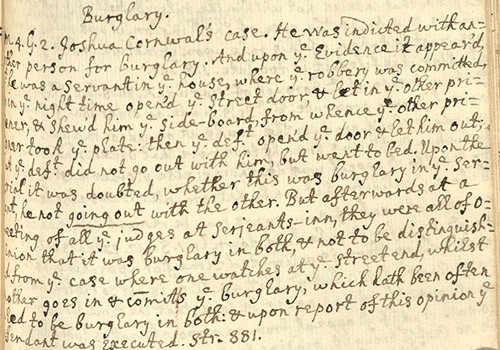 Burglary.
m. 4. G. 2. Joshua Cornwal's case. He was indicted with an-
ther person for burglary. And upon yᵉ Evidence it appear'd,
he was a servant in yᵉ house, where yᵉ robbery was committed,
in yᵉ night time open'd yᵉ street door, & let in yᵉ other pri-
oner, & shew'd him yᵉ side-board, from whence yᵉ other pri-
oner took yᵉ plate: then yᵉ defᵗ open'd yᵉ door & let him out.
ut yᵉ defᵗ did not go out with him, but went to bed. Upon the
rial it was doubted, whether this was burglary in yᵉ ser-
nt, he not going out with the other. But afterwards at a
eeting of all yᵉ judges at Serjeants-inn, they were all of o-
inion that it was burglary in both, & not to be distinguish-
d from yᵉ case where one watches at yᵉ street end, whilst
nother goes in & comits yᵉ burglary, which hath been often
led to be burglary in both: & upon report of this opinion yᵉ
fendant was executed. Str. 881.